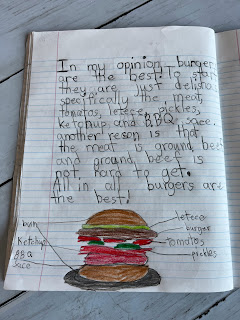 In my opinion burger
are the best! To star
they are just delisho
specifically the meat,
tomatos, letece, pickles,
ketchup and BBQ sace.
another reson is that
the meat is ground, beef
and ground, beef is
not, hard to get.
All in all burgers are
the best!
bun
Ketchup
BBQ
sace
letece
burger
Tomatos
pickles